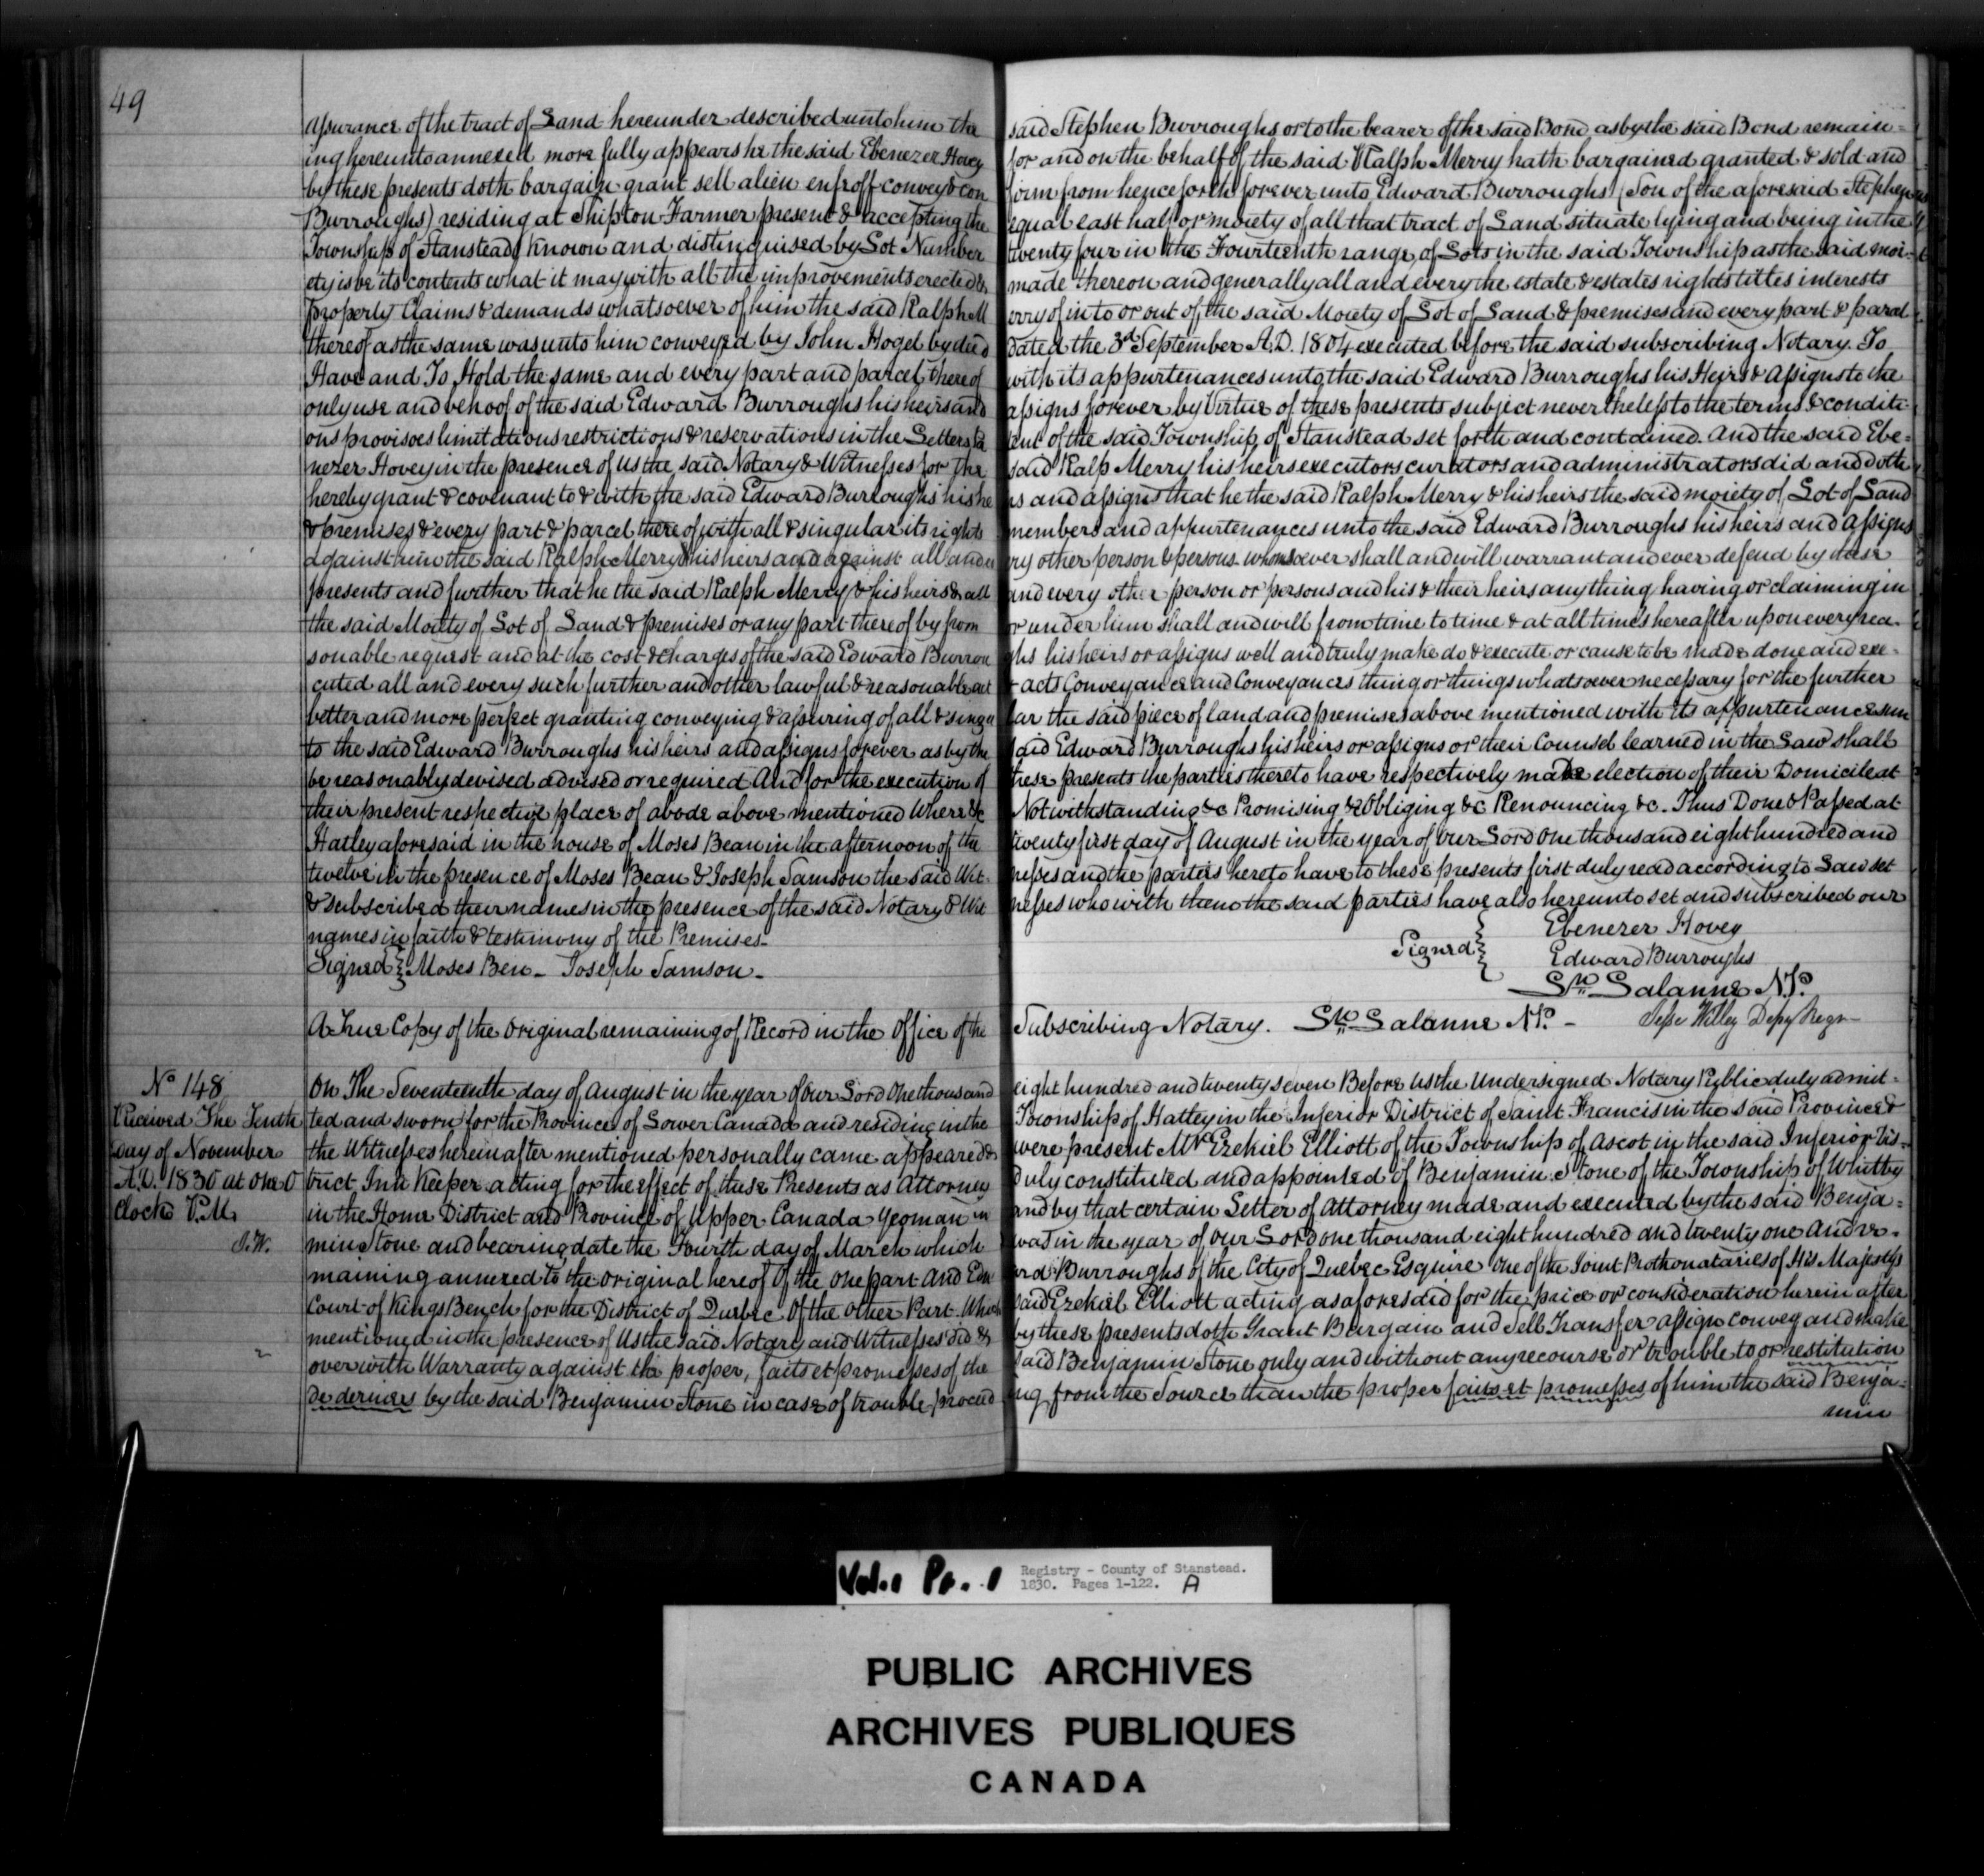 49
assurance of the tract of Land hereunder described unto him the said Stephen Burroughs or to the bearer of the said Bond as by the said Bond remain=
ing hereunto annexed more fully appears he the said Ebenezer Hovey for and on the behalf of the said Ralph Merry hath bargained granted & sold and
by these presents doth bargain grant sell alien enfeoff convey & con firm from henceforth forever unto Edward Burroughs (Son of the aforesaid Stephen
Burroughs) residing at Shipton Farmer present & accepting the equal east half or moiety of all that tract of Land situate lying and being in the
Township of Stanstead known and distinguised by Lot Number twenty four in the Fourteenth range of Lots in the said Township as the said moi=
ety is be its contents what it may with all the improvements erected & made thereon and generally all and every the estate & estates rights titles interests
property Claims & demands whatsoever of him the said Ralph M erry of in to or out of the said Moiety of Lot of Land & premises and every part & parcel
thereof as the same was unto him conveyed by John Hogel by deed dated the 3d September A.D. 1804 executed before the said subscribing Notary. To
Have and To Hold the same and every part and parcel thereof with its appurtenances unto the said Edward Burroughs his Heirs & Assigns to the
only use and behoof of the said Edward Burroughs his heirs and assigns forever by Virtue of these presents subject nevertheless to the terms & conditi
ons provisoes limitations restrictions & reservations in the Letters Pa tent of the said Township of Stanstead set forth and contained. And the said Ebe=
nezer Hovey in the presence of Us the said Notary & Witnesses for the said Ralp Merry his heirs executors curators and administrators did and doth
hereby grant & covenant to & with the said Edward Burroughs his he irs and assigns that he the said Ralph Merry & his heirs the said moiety of Lot of Land
& premises & every part & parcel thereof with all & singular its rights members and appurtenances unto the said Edward Burroughs his heirs and assigns
against him the said Ralph Merry & his heirs and against all and eve ry other person & persons whomsoever shall and will warrant and ever defend by these
presents and further that he the said Ralph Merry & his heirs & all and every other person or persons and his & their heirs any thing having or claiming in
the said Moiety of Lot of Land & premises or any part thereof by from or under him shall and will from time to time & at all times hereafter upon every rea=
sonable request and at the cost & charges of the said Edward Burrou ghs his heirs or assigns well and truly make do & execute or cause to be made done and exe=
cuted all and every such further and other lawful & reasonable act & acts Conveyance and Conveyances thing or things whatsoever necessary for the further
better and more perfect granting conveying & assuring of all & singu lar the said piece of land and premises above mentioned with its appurtenances un
to the said Edward Burroughs his heirs and assigns forever as by the said Edward Burroughs his heirs or assigns or their Counsel learned in the Law shall
be reasonably devised advised or required And for the execution of these presents the parties thereto have respectively made election of their Domicile at
their present respective place of abode above mentioned Where &c Notwithstanding &c Promising &c Obliging &c Renouncing &c. Thus Done & Passed at
Hatley aforesaid in the house of Moses Bean in the afternoon of the twenty first day of August in the year of Our Lord One thousand eight hundred and
twelve in the presence of Moses Bean & Joseph Samson the said Wit= nesses and the parties hereto have to these presents first duly read according to Law set
& subscribed their names in the presence of the said Notary & Wit nesses who with them the said parties have also hereunto set and subscribed our
names in faith & testimony of the Premises.
Signed Moses Ben – Joseph Samson –
Signed
Ebenezer Hovey
Edward Burroughs
Ln Lalanne N.P.
A True Copy of the Original remaining of Record in the Office of the Subscribing Notary. Ln Lalanne N.P. – Jesse Willey Depy Regr –
No 148
Received The Tenth
Day of November
A.D. 1830 at One O
Clock P.M.
J.W.
On The Seventeenth day of August in the year of Our Lord One thousand eight hundred and twenty seven Before Us the Undersigned Notary Public duly admit=
ted and sworn for the Province of Lower Canada and residing in the Township of Hatley in the Inferior District of Saint Francis in the said Province &
the Witnesses hereinafter mentioned personally came appeared & were present Mr Ezekiel Elliott of the Township of Ascot in the said Inferior Dis=
trict Inn Keeper acting for the effect of these Presents as Attorney duly constituted and appointed of Benjamin Stone of the Township of Whitby
in the Home District and Province of Upper Canada Yeoman in and by that certain Letter of Attorney made and executed by the said Benja=
min Stone and bearing date the Fourth day of March which was in the year of Our Lord one thousand eight hundred and twenty one And re=
maining annexed to the original hereof Of the One part And Edw ard Burroughs of the City of Quebec Esquire One of the Joint Prothonotaries of His Majestys
Court of Kings Bench for the District of Quebec Of the Other Part. Which said Ezekiel Elliott acting as aforesaid for the price or consideration herein after
mentioned in the presence of Us the said Notary and Witnesses did & by these presents doth Grant Bargain and Sell Transfer assign convey and make
over with Warranty against the proper, faits et promesses of the said Benjamin Stone only and without any recourse or trouble to or restitution
de deniers by the said Benjamin Stone in case of trouble proceed ing from the Source than the proper faits et promesses of him the said Benja=
min
Vol. 1 Pr. 1
Registry - County of Stanstead.
1830. Pages 1-122. A
PUBLIC ARCHIVES
ARCHIVES PUBLIQUES
CANADA